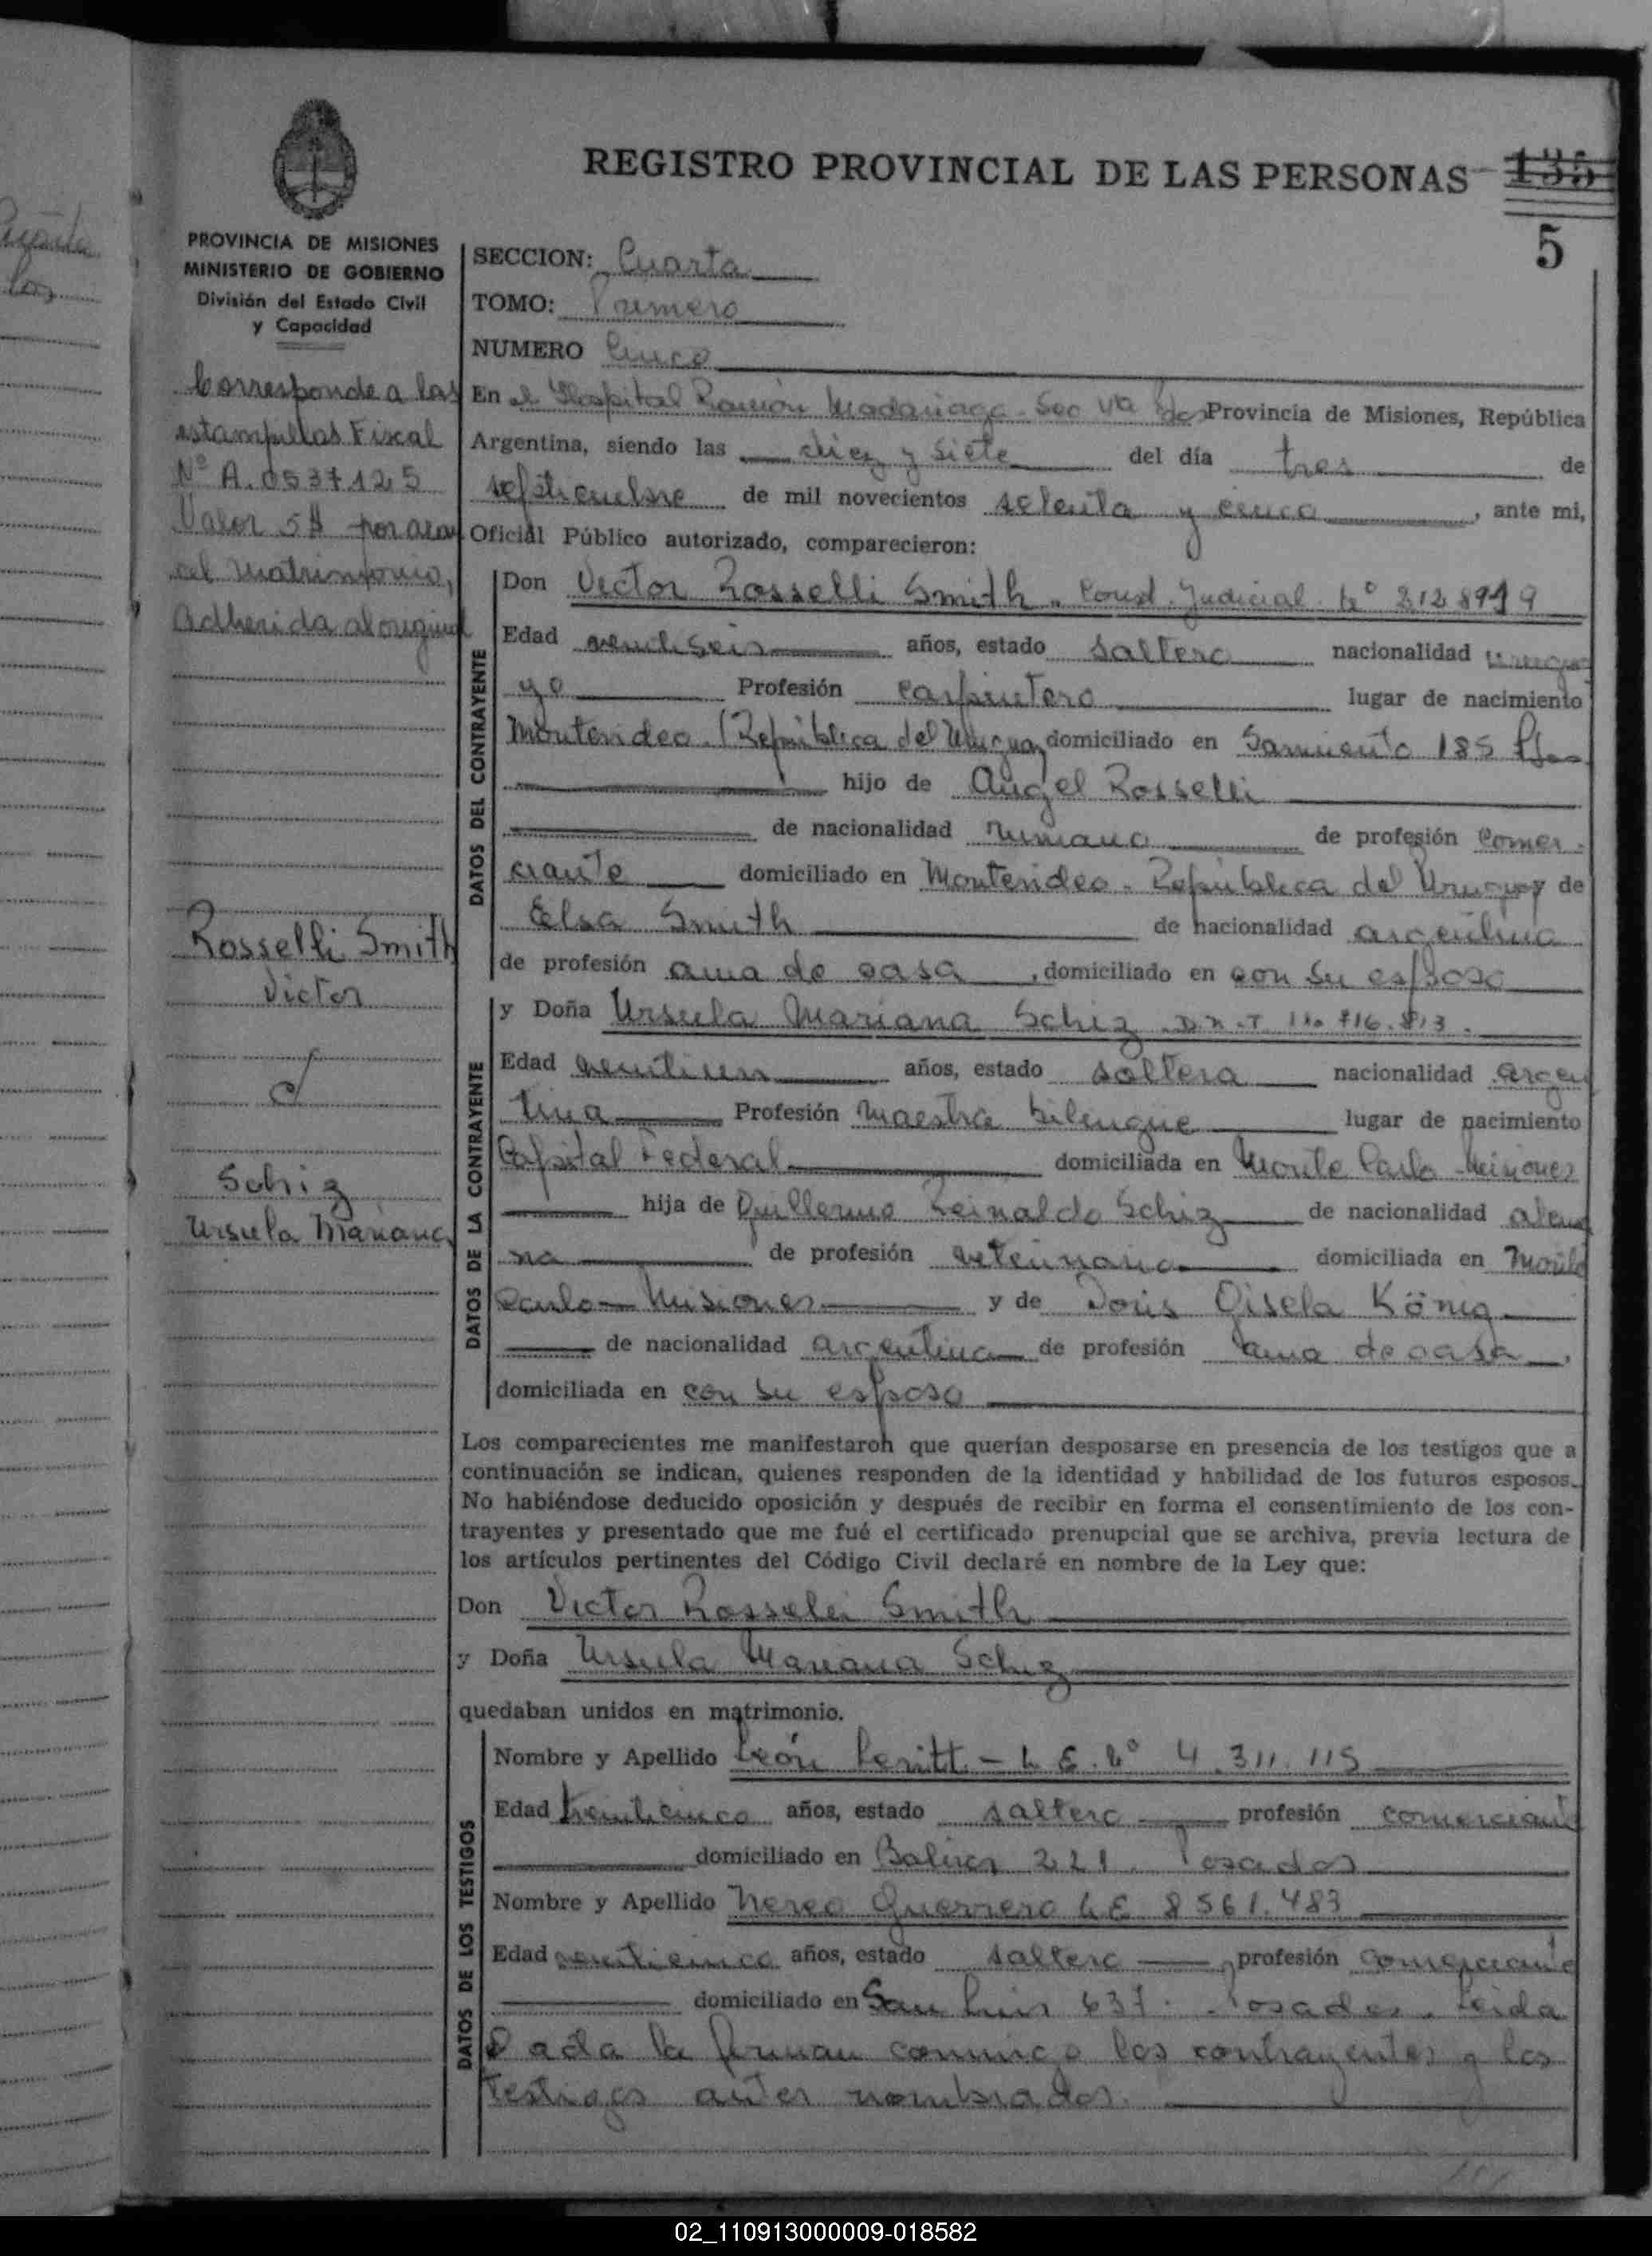 REGISTRO PROVINCIAL DE LAS PERSONAS 135
5
PROVINCIA DE MISIONES
MINISTERIO DE GOBIERNO
División del Estado Civil
y Capacidad
Corresponde a las
estampillas Fiscal
Nº A. 0537125
Valor 5$ por
al matrimonio,
Adherida al original
Rosselli Smith
Victor
Schiz
Ursula Mariana
SECCION: Cuarta
TOMO: Primero
NUMERO Cinco
En el Hospital Ramón Madariaga - Sec Provincia de Misiones, República
Argentina, siendo las diez y siete del día tres de
septiembre de mil novecientos setenta y cinco, ante mi,
Oficiál Público autorizado, comparecieron:
DATOS DEL CONTRAYENTE
Don Victor Rosselli Smith. Judicial. Nº
Edad años, estado soltero nacionalidad urugua
yo Profesión carpintero lugar de nacimiento
Montevideo. (República del Uruguay domiciliado en Sarmiento 185 Pdas
hijo de Angel Rosselli
de nacionalidad rumano de profesión comer.
ciante domiciliado en Montevideo - República del Uruguay de
Elsa Smith de nacionalidad argentina
de profesión ama de casa, domiciliado en con su esposo
DATOS DE LA CONTRAYENTE
y Doña Ursula Mariana Schiz
Edad años, estado soltera nacionalidad argen
tina Profesión maestra bilengue lugar de nacimiento
Capital Federal domiciliada en Monte Carlo - Misiones
hija de Guillermo Reinaldo Schiz de nacionalidad alema
na de profesión veterinario domiciliada en Monte
Carlo - Misiones y de Doris Gisela König
de nacionalidad argentina de profesión ama de casa,
domiciliada en con su esposo
Los comparecientes me manifestaron que querían desposarse en presencia de los testigos que a
continuación se indican, quienes responden de la identidad y habilidad de los futuros esposos.
No habiéndose deducido oposición y después de recibir en forma el consentimiento de los con-
trayentes y presentado que me fué el certificado prenupcial que se archiva, previa lectura de
los artículos pertinentes del Código Civil declaré en nombre de la Ley que:
Don Victor Rosselli Smith
y Doña Ursula Mariana Schiz
quedaban unidos en matrimonio.
DATOS DE LOS TESTIGOS
Nombre y Apellido León - L E. Nº 4.311.115
Edad años, estado soltero profesión comerciante
domiciliado en Bolívar 221. Posadas
Nombre y Apellido Nereo Guerrero L E 8561.483
Edad años, estado soltero profesión comerciante
domiciliado en San Luis 637. Posadas. Leida
el acta la firman conmigo los contrayentes y los
testigos antes nombrados.
02_110913000009-018582